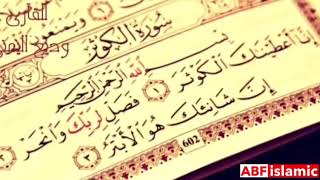 القارئ
وديع اليمني
سورة الكوثر
بسم الله الرحمن الرحيم
إنا أعطينك الكوثر ١ فصل لربك وانحر ٢
إن شانئك هو الأبتر ٣
602
ABFislamic